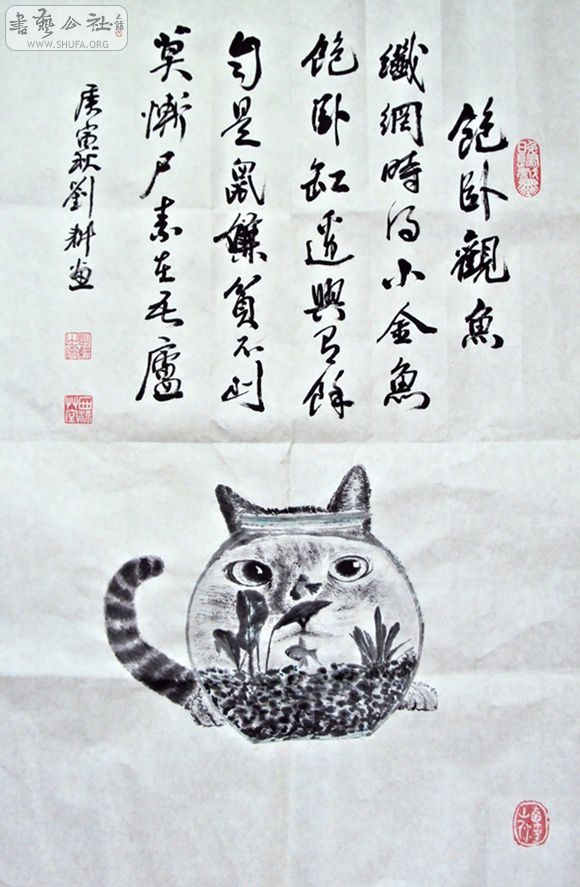 書藝公社
WWW.SHUFA.ORG
飽卧觀魚
纖網時得小金魚
飽卧缸邊興有餘
自是鼠嫌貧不到
莫慚尸素在吾廬
庚寅秋劉耕畫